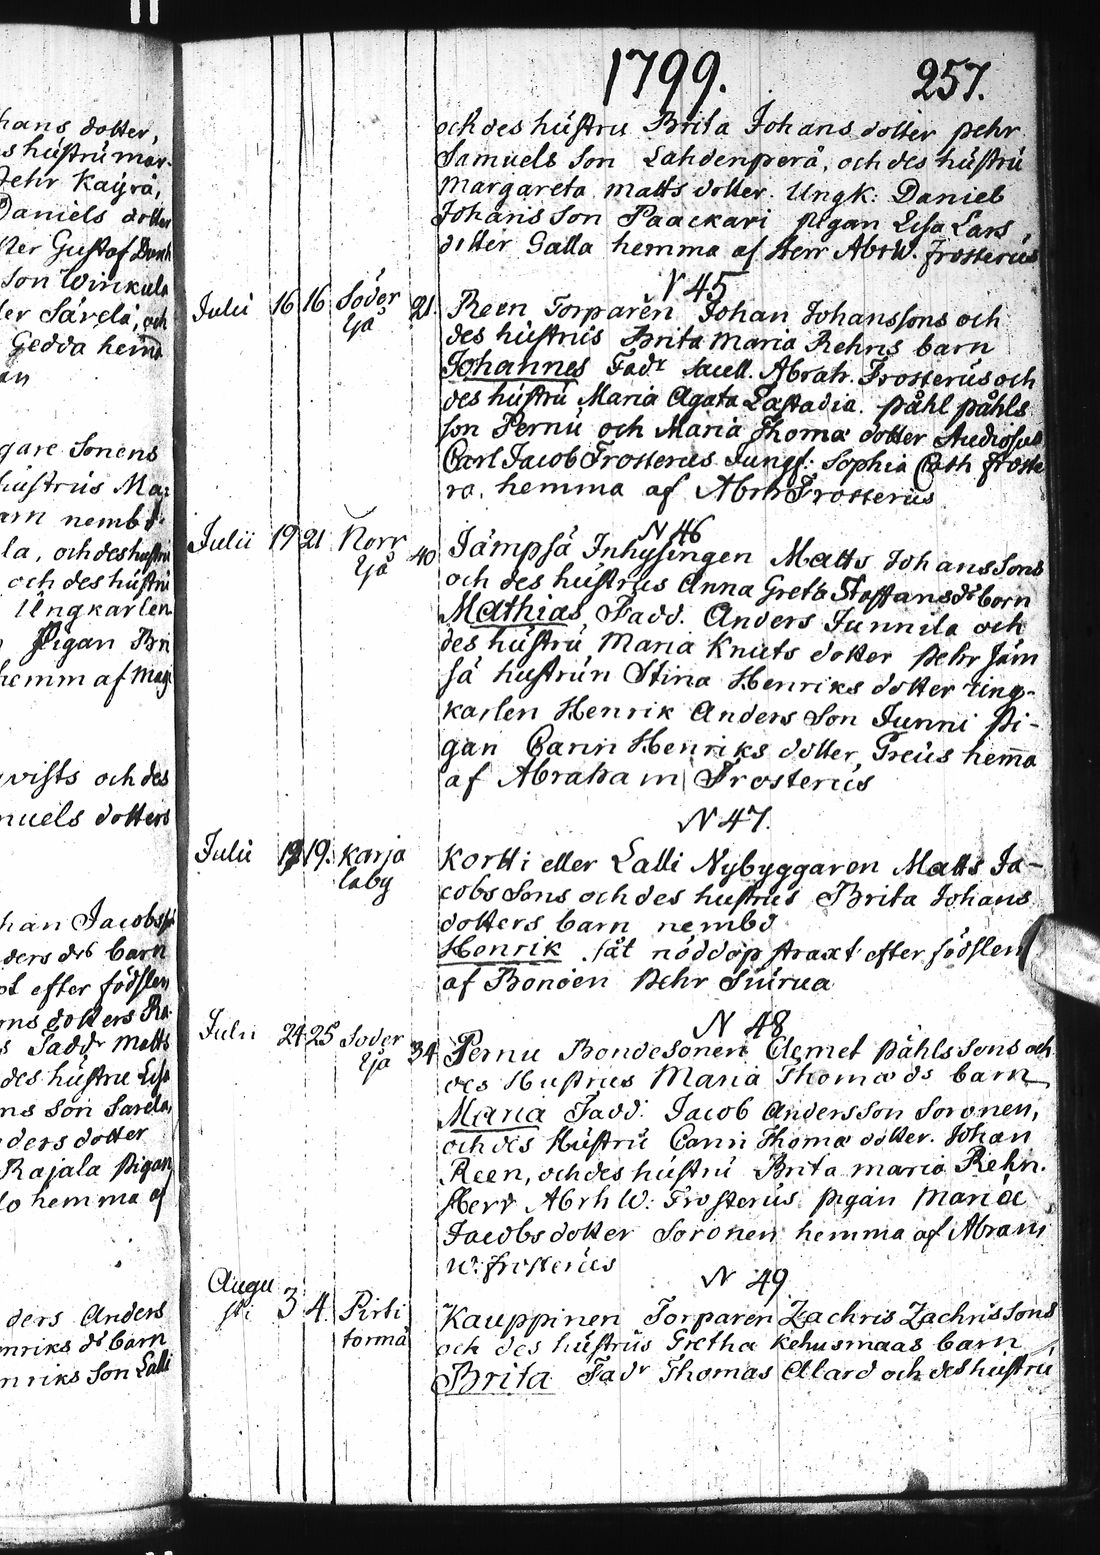 hans dotter,
s hustru mar-
Pehr Kaÿra,
Daniels dotter
ter Gustaf
Son Winkula
ler Särelä, och
Gedda hema
an
gare Sonens
hustrus Ma:
arn nembd.
la, och des hustru
och des hustru
Ungkarlen
Pigan Bri
hemm af Mag
qvists och des
muels dotters
han Jacobss
ders drs barn
pt efter födslen
rns dotters Ra
s Faddr Matts
des hustru Lisa
ns Son Sarela,
ders dotter
Rajala Pigan
lo hemma af
ders Anders
nriks dr barn
nriks Son Lalli
1799. 257.
och des hustru Brita Johans dotter Pehr
Samuels Son Lahdenperä, och des hustru
Margareta Matts dotter. Ungk: Daniel
Johans Son Paackari Pigan Lisa Lars
dotter Galla hemma af Herr Abr W. Frosterus
N 45
Julii 16 16 Söder 21. Reen Torparen Johan Johanssons och
Ijå des hustrus Brita Maria Rehns barn
Johannes Fadr Abrah. Frosterus och
des hustru Maria Agata Lastadia. Påhl Påhls
son Pernu och Maria Thomæ dotter Studiosus
Carl Jacob Frosterus Jungf: Sophia Cath Froste
ra. hemma af Abrh Frosterus
N 46
Julii 19 21 Norr 40 Jämpsä Inhysingen Matts Johanssons
Ijå och des hustrus Anna Greta Staffans dr barn
Mathias, Fadd. Anders Junnila och
des hustru Maria Knuts dotter Pehr Jäm
sä hustrun Stina Henriks dotter Ung-
karlen Henrik Anders Son Junni Pi-
gan Carin Henriks dotter, Greus hema
af Abraham Frosterus
N 47.
Julii 19 19. Karja Kortti eller Lalli Nybyggaren Matts Ja-
laby cobs Sons och des hustrus Brita Johans
dotters barn nembd
Henrik. fåt nöddop straxt efter födslen
af Bonden Pehr Siurua
N 48
Julii 24 25 Soder 34 Pernu Bondesonen Clemet Påhls Sons och
Ijå des Hustrus Maria Thomæ ds barn
Maria Fadd: Jacob Andersson Soronen,
och des Hustru Carin Thomæ dotter. Johan
Reen, och des hustru Brita Maria Rehn.
Herr Abrh W: Frosterus Pigan Maria
Jacobs dotter Soronen hemma af Abram
W: Frosterus
N 49
Augu
sti 3 4. Pirti Kauppinen Torparen Zachris Zachris Sons
torma och des hustrus Gretha Kehusmaas barn
Brita Fadr Thomas Alard och des hustru